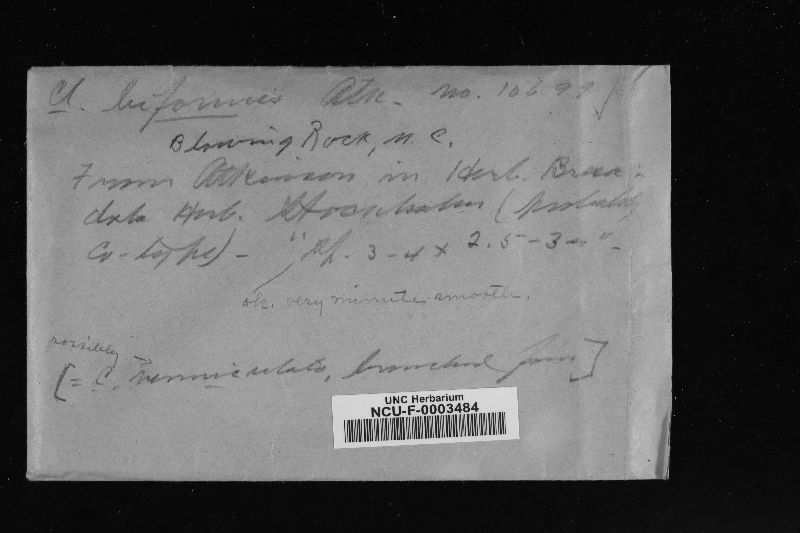 Cl. biformis Atk. no. 10699
Blowing Rock, N.C.
From Atkinson in Herb. Bresa-
dola Herb. Stockholm (probably
Co-type) - "Sp. 3-4 x 2.5-3 m" -
ok. very minute smooth.
possibly
[= C. vermiculata, branched form]
UNC Herbarium
NCU-F-0003484